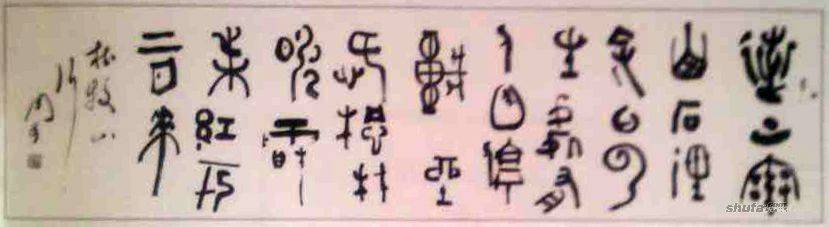 遠上寒
山石徑
斜白云
生處有
人家停
車坐
愛楓林
晚霜
葉紅于
二月花
杜牧山
行
shufa